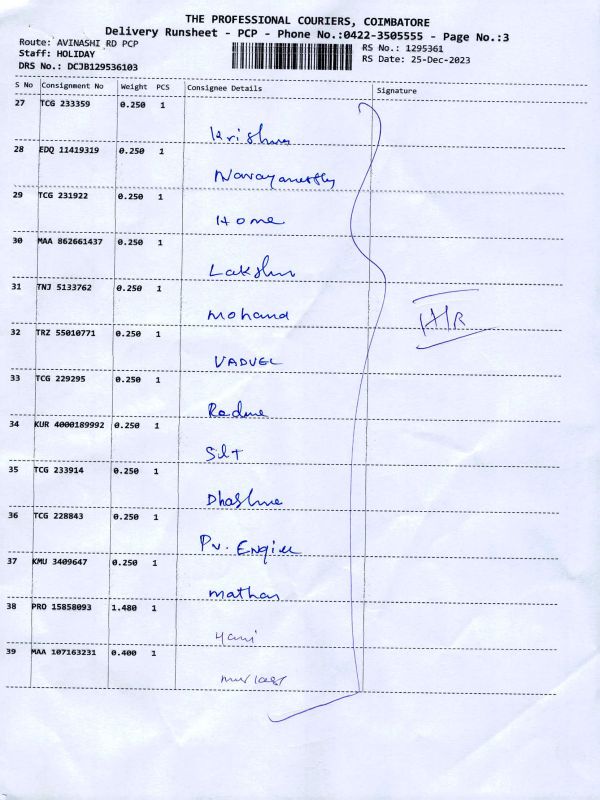 THE PROFESSIONAL COURIERS, COIMBATORE
Delivery Runsheet - PCP - Phone No.:0422-3505555 - Page No.:3
Route: AVINASHI RD PCP
Staff: HOLIDAY
DRS No.: DCJB129536103
RS No.: 1295361
RS Date: 25-Dec-2023
S No Consignment No Weight PCS Consignee Details Signature
27 TCG 233359 0.250 1
Krishna
28 EDQ 11419319 0.250 1
29 TCG 231922 0.250 1
Home
30 MAA 862661437 0.250 1
Lakshm
31 TNJ 5133762 0.250 1
Mohand
32 TRZ 55010771 0.250 1
VADVEL
33 TCG 229295 0.250 1
34 KUR 4000189992 0.250 1
35 TCG 233914 0.250 1
36 TCG 228843 0.250 1
Pv. Engiee
37 KMU 3409647 0.250 1
mathan
38 PRO 15858093 1.480 1
39 MAA 107163231 0.400 1